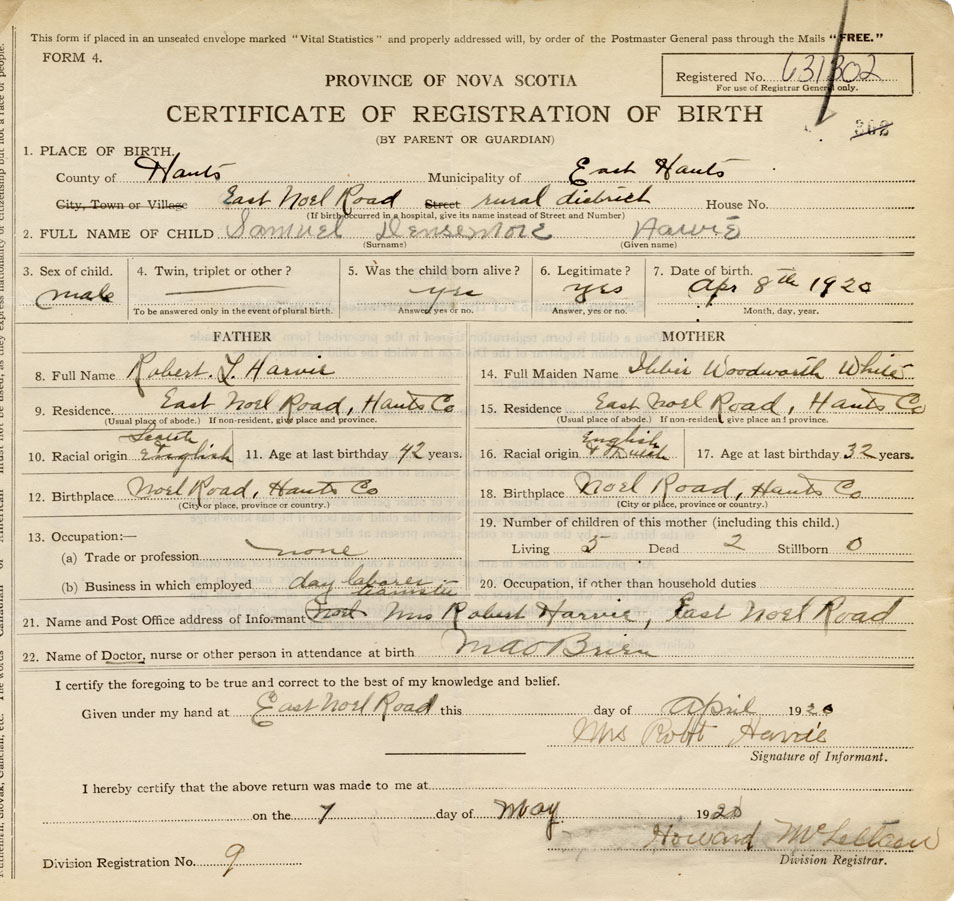 This form if placed in an unsealed envelope marked "Vital Statistics" and properly addressed will, by order of the Postmaster General pass through the Mails "FREE."
FORM 4.
Registered No. 631302
For use of Registrar General only.
PROVINCE OF NOVA SCOTIA
CERTIFICATE OF REGISTRATION OF BIRTH
(BY PARENT OR GUARDIAN)
1. PLACE OF BIRTH.
County of Hants Municipality of East Hants
City, Town or Village East Noel Road Street rural district House No.
(If birth occurred in a hospital, give its name instead of Street and Number)
2. FULL NAME OF CHILD Samuel Densemore Harvie
(Surname) (Given name)
3. Sex of child. 4. Twin, triplet or other? 5. Was the child born alive? 6. Legitimate? 7. Date of birth.
male yes yes Apr 8th 1920
To be answered only in the event of plural birth. Answer, yes or no. Answer, yes or no. Month, day, year.
FATHER MOTHER
8. Full Name Robert. L. Harvie 14. Full Maiden Name Woodworth White
9. Residence East Noel Road, Hants Co 15. Residence East Noel Road, Hants Co
(Usual place of abode.) If non-resident, give place and province. (Usual place of abode.) If non-resident, give place and province.
10. Racial origin English 11. Age at last birthday 42 years. 16. Racial origin English 17. Age at last birthday 32 years.
12. Birthplace Noel Road, Hants Co 18. Birthplace Noel Road, Hants Co
(City or place, province or country.) (City or place, province or country.)
13. Occupation:— 19. Number of children of this mother (including this child.)
(a) Trade or profession none Living 5 Dead 2 Stillborn 0
(b) Business in which employed day laborer teamster 20. Occupation, if other than household duties
21. Name and Post Office address of Informant Noel Mrs Robert Harvie, East Noel Road
22. Name of Doctor, nurse or other person in attendance at birth
I certify the foregoing to be true and correct to the best of my knowledge and belief.
Given under my hand at East Noel Road this day of April 1920
Mrs Robt Harvie
Signature of Informant.
I hereby certify that the above return was made to me at
on the 7 day of May 1920
Howard
Division Registration No. 9
Division Registrar.